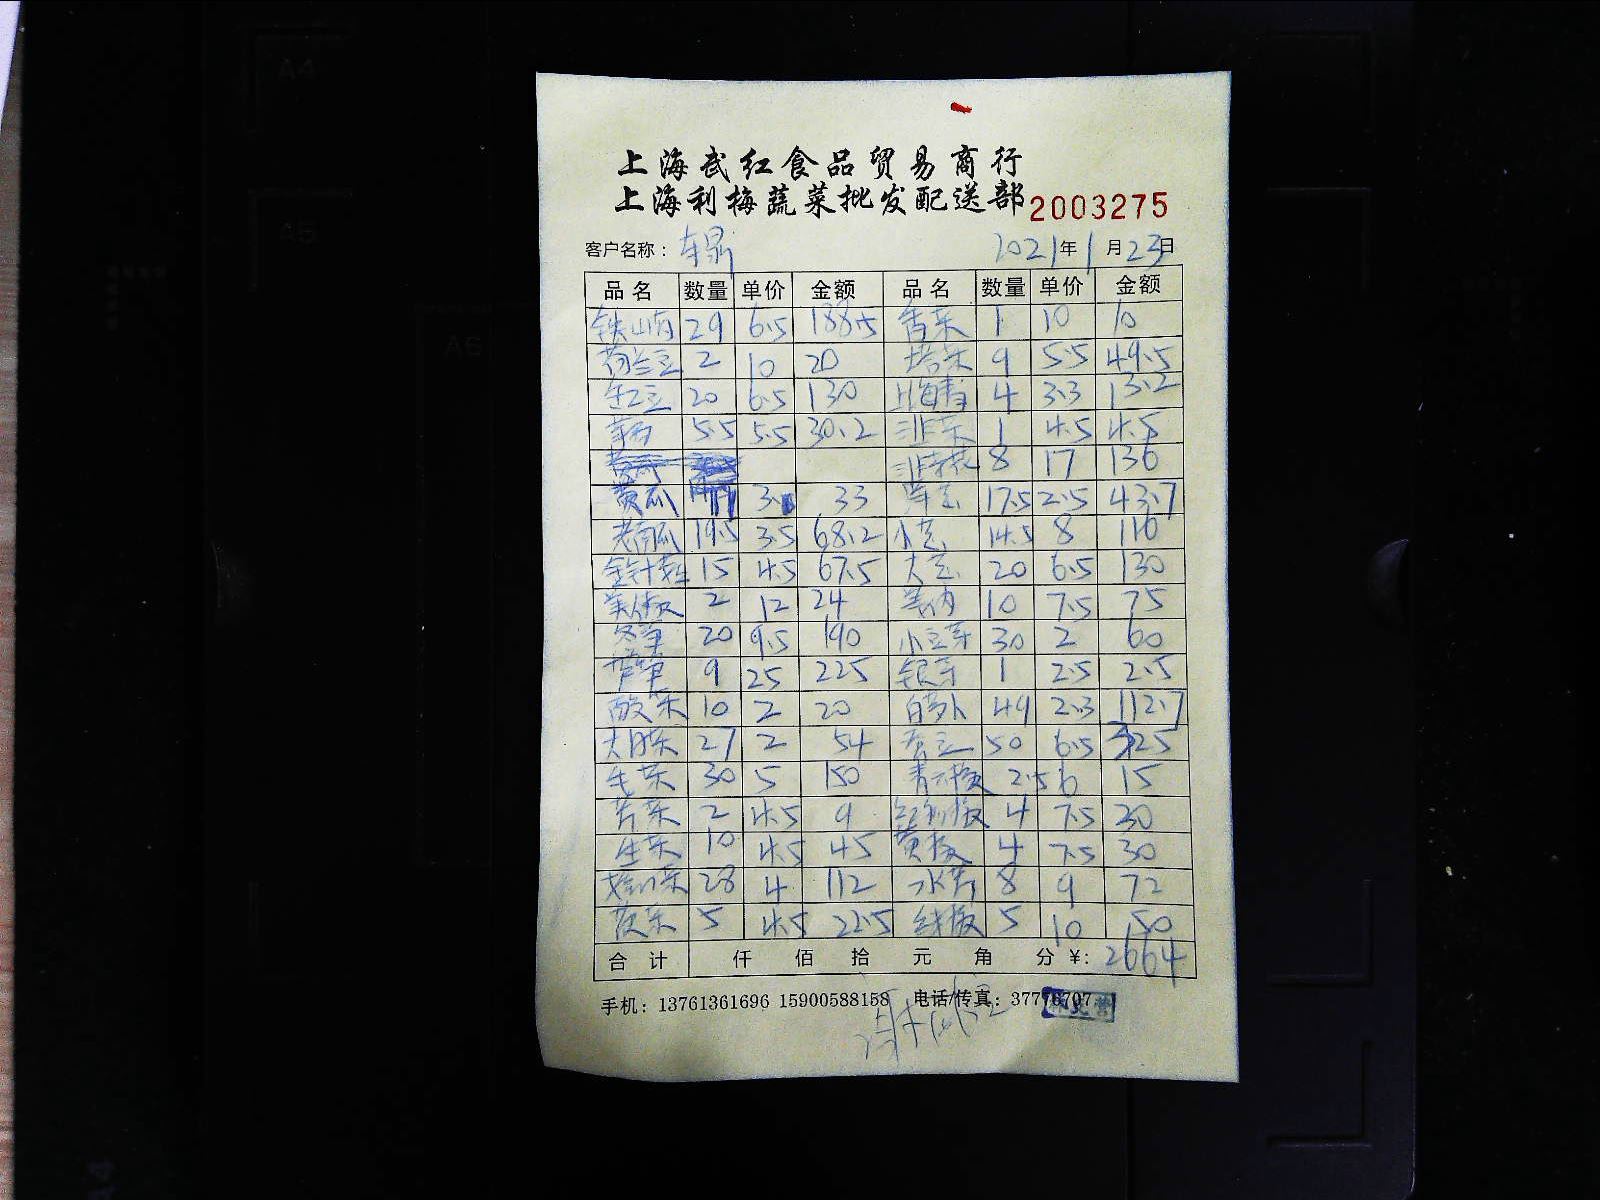 上海武红食品贸易商行
上海利梅蔬菜批发配送部 2003275
客户名称： 2021年1月23日
品名 数量 单价 金额 品名 数量 单价 金额
铁山药 29 6.5 188.5 香菜 1 10 10
荷兰豆 2 10 20 塔菜 9 5.5 49.5
豇豆 20 6.5 130 上海青 4 3.3 13.2
5.5 5.5 30.2 韭菜 1 4.5 4.5
8 17 136
黄瓜 11 3. 33 洋芋 17.5 2.5 43.7
老南瓜 19.5 3.5 68.2 14.5 8 116
金针菇 15 4.5 67.5 20 6.5 130
美人椒 2 12 24 10 7.5 75
冬笋 20 9.5 190 小豆芽 30 2 60
芦笋 9 25 225 银芽 1 2.5 2.5
酸菜 10 2 20 白萝卜 49 2.3 112.7
大白菜 27 2 54 50 6.5 325
毛菜 30 5 150 青椒 2.5 6 15
苦菜 2 4.5 9 红椒 4 7.5 30
生菜 10 4.5 45 黄椒 4 7.5 30
娃娃菜 28 4 112 水芹 8 9 72
5 4.5 22.5 线椒 5 10 50
合计 仟 佰 拾 元 角 分 ￥: 2664
手机：13761361696 15900588158 电话/传真：37776707